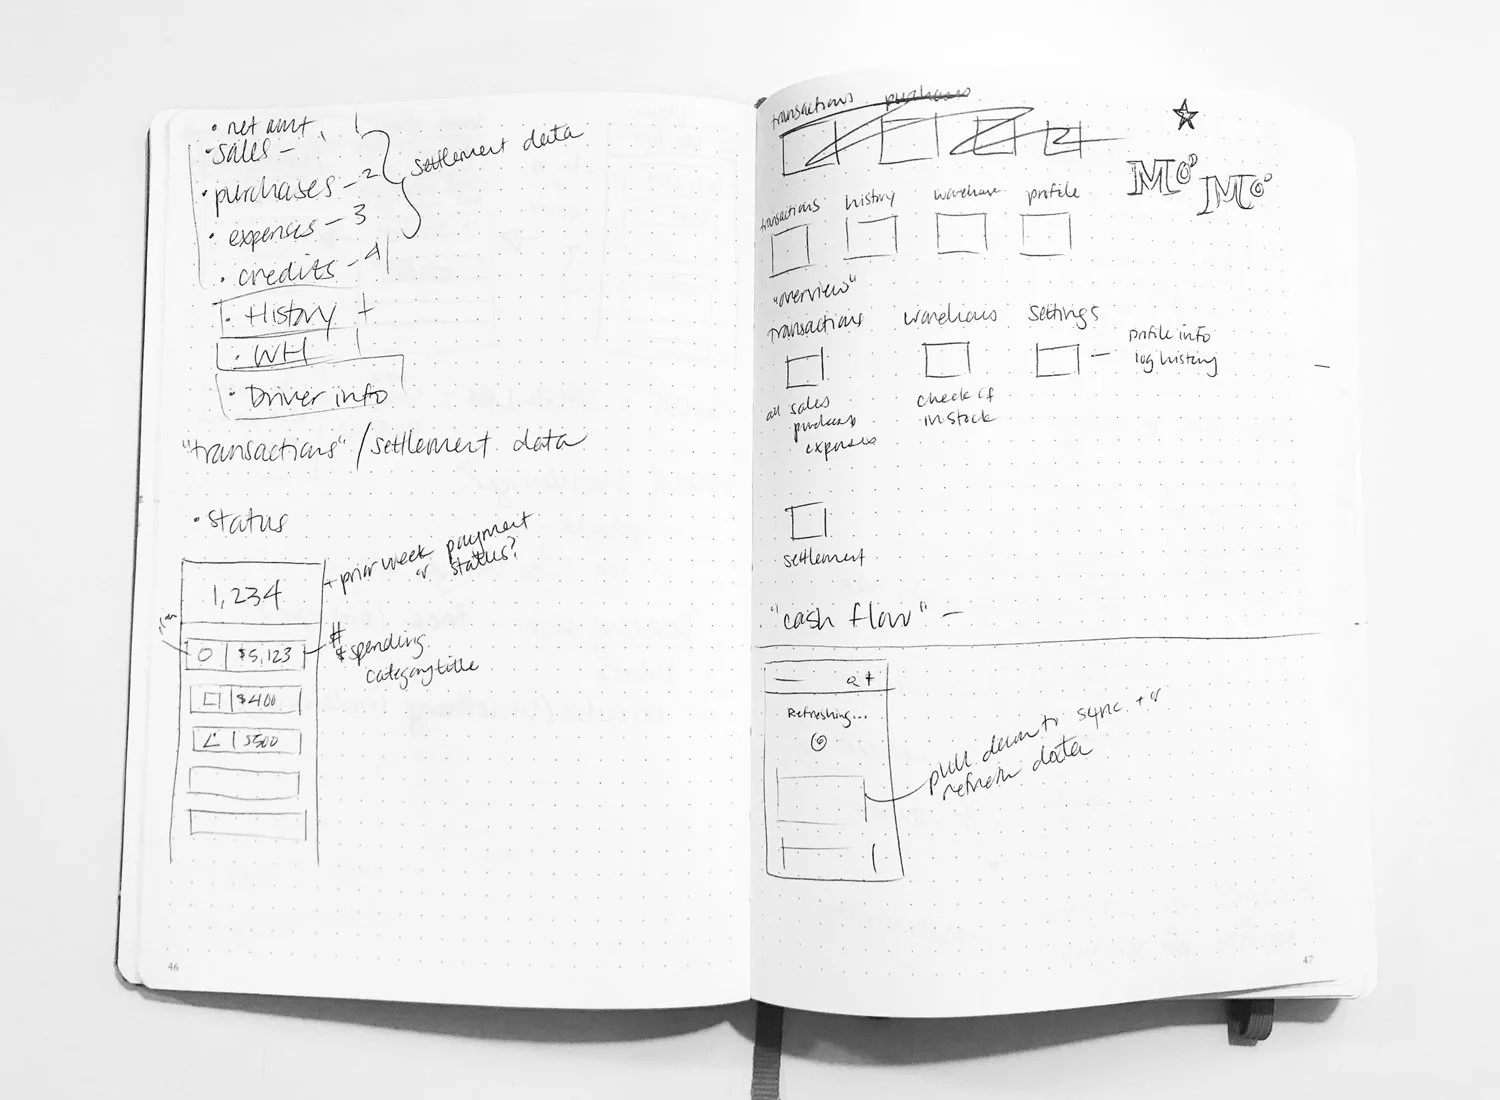 • net amt. 1
• sales –
• purchases – 2
settlement data
• expenses – 3
• credits – 4
• History +
• WH
• Driver info
"transactions" / settlement data
• status
+ prior week payment
or status?
1,234
$5,123
#
$ spending
category title
$400
$500
46
transactions purchases
Mo' Mo'
transactions history warehouse profile
"overview"
transactions warehouse settings
profile info
log history
all sales
purchases
expenses
check if
in stock
settlement
"cash flow" –
Refreshing...
pull down to sync + or
refresh data
47